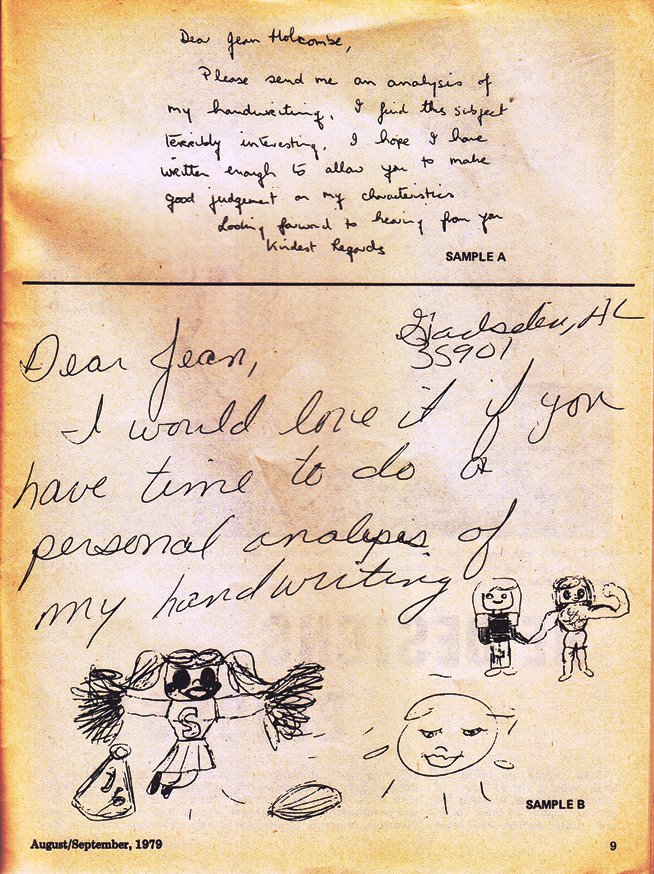 Dear Jean Holcombe,
Please send me an analysis of
my handwriting. I find this subject
terribly interesting. I hope I have
written enough to allow you to make
good judgement on my charateristics
Looking forward to hearing from you
Kindest Regards
SAMPLE A
Gadsden, AL
35901
Dear Jean,
I would love it if you
have time to do a
personal analysis of
my handwriting
S
16
SAMPLE B
August/September, 1979
9